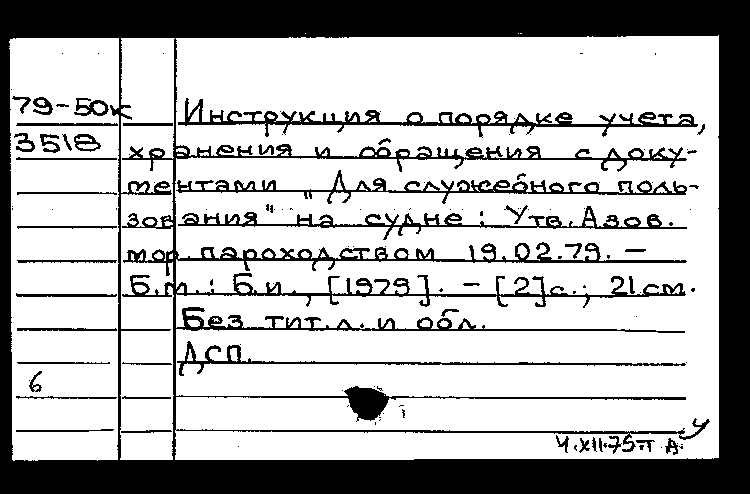 79-50к Инструкция о порядке учета,
3518 хранения и обращения с доку-
ментами „Для служебного поль-
зования" на судне: Утв. Азов.
мор. пароходством 19.02.79. –
Б.м.: Б.и., [1979]. – [2]с.; 21см.
Без тит.л. и обл.
ДСП.
6